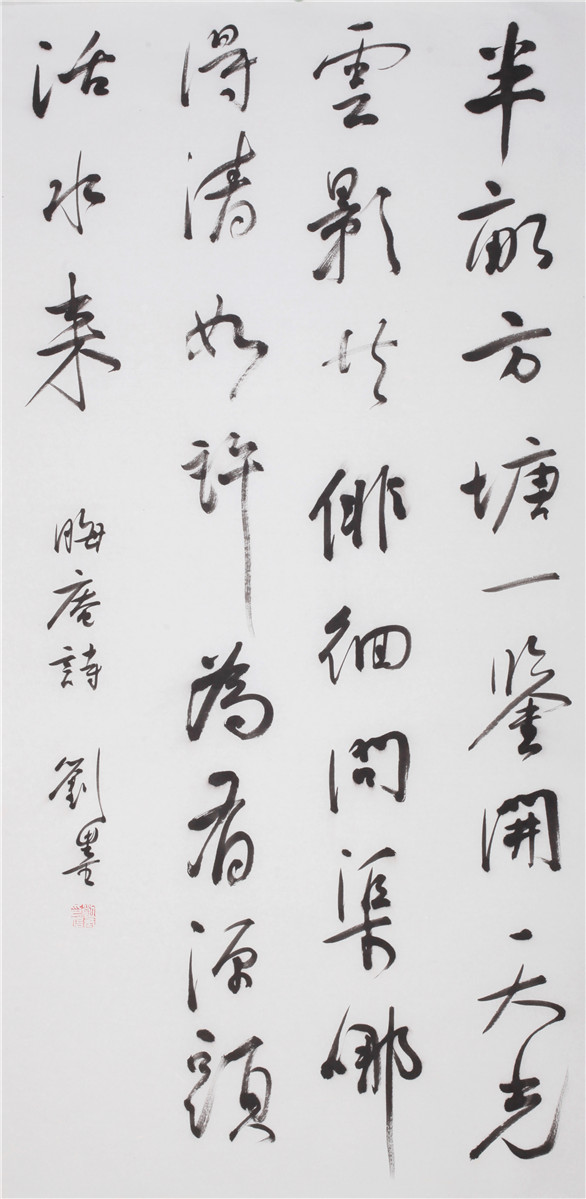 半畝方塘一鑒開天光
雲影共俳徊問渠娜
得清如許為有源頭
活水来
晦庵詩 劉墨